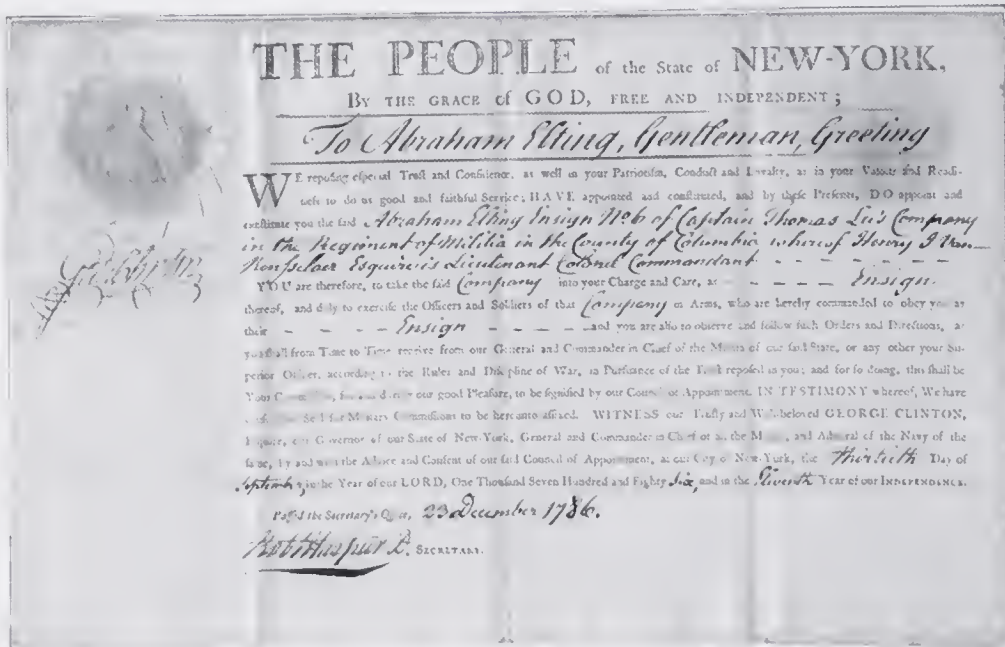 THE PEOPLE of the State of NEW-YORK,
BY THE GRACE of GOD, FREE AND INDEPENDENT;
To Abraham Elting, Gentleman, Greeting
WE reposing especial Trust and Confidence, as well in your Patriotism, Conduct and Loyalty, as in your Valour and Readi-
ness to do us good and faithful Service; HAVE appointed and constituted, and by these Presents, DO appoint and
constitute you the said Abraham Elting Ensign No 6 of Captain Thomas Lee's Company
in the Regiment of Militia in the County of Columbia whereof Henry I Van
Rensselaer Esquire is Lieutenant Colonel Commandant - - - - - -
YOU are therefore, to take the said Company into your Charge and Care, as - - - - - Ensign
thereof, and duly to exercise the Officers and Soldiers of that Company in Arms, who are hereby commanded to obey you as
their - - - - Ensign - - - - - and you are also to observe and follow such Orders and Directions, as
you shall from Time to Time receive from our General and Commander in Chief of the Militia of our said State, or any other your Su-
perior Officer, according to the Rules and Discipline of War, in Pursuance of the Trust reposed in you; and for so doing, this shall be
Your Commission, for and during our good Pleasure, to be signified by our Council of Appointment. IN TESTIMONY whereof, We have
Seal for Military Commissions to be hereunto affixed. WITNESS our Trusty and Well-beloved GEORGE CLINTON,
Esquire, our Governor of our State of New-York, General and Commander in Chief of all the Militia, and Admiral of the Navy of the
same, by and with the Advice and Consent of our said Council of Appointment, at our City of New-York, the thirtieth Day of
September, in the Year of our LORD, One Thousand Seven Hundred and Eighty Six, and in the Eleventh Year of our INDEPENDENCE.
Passed the Secretary's Office, 23 December 1786.
Robt Harpur D. SECRETARY.